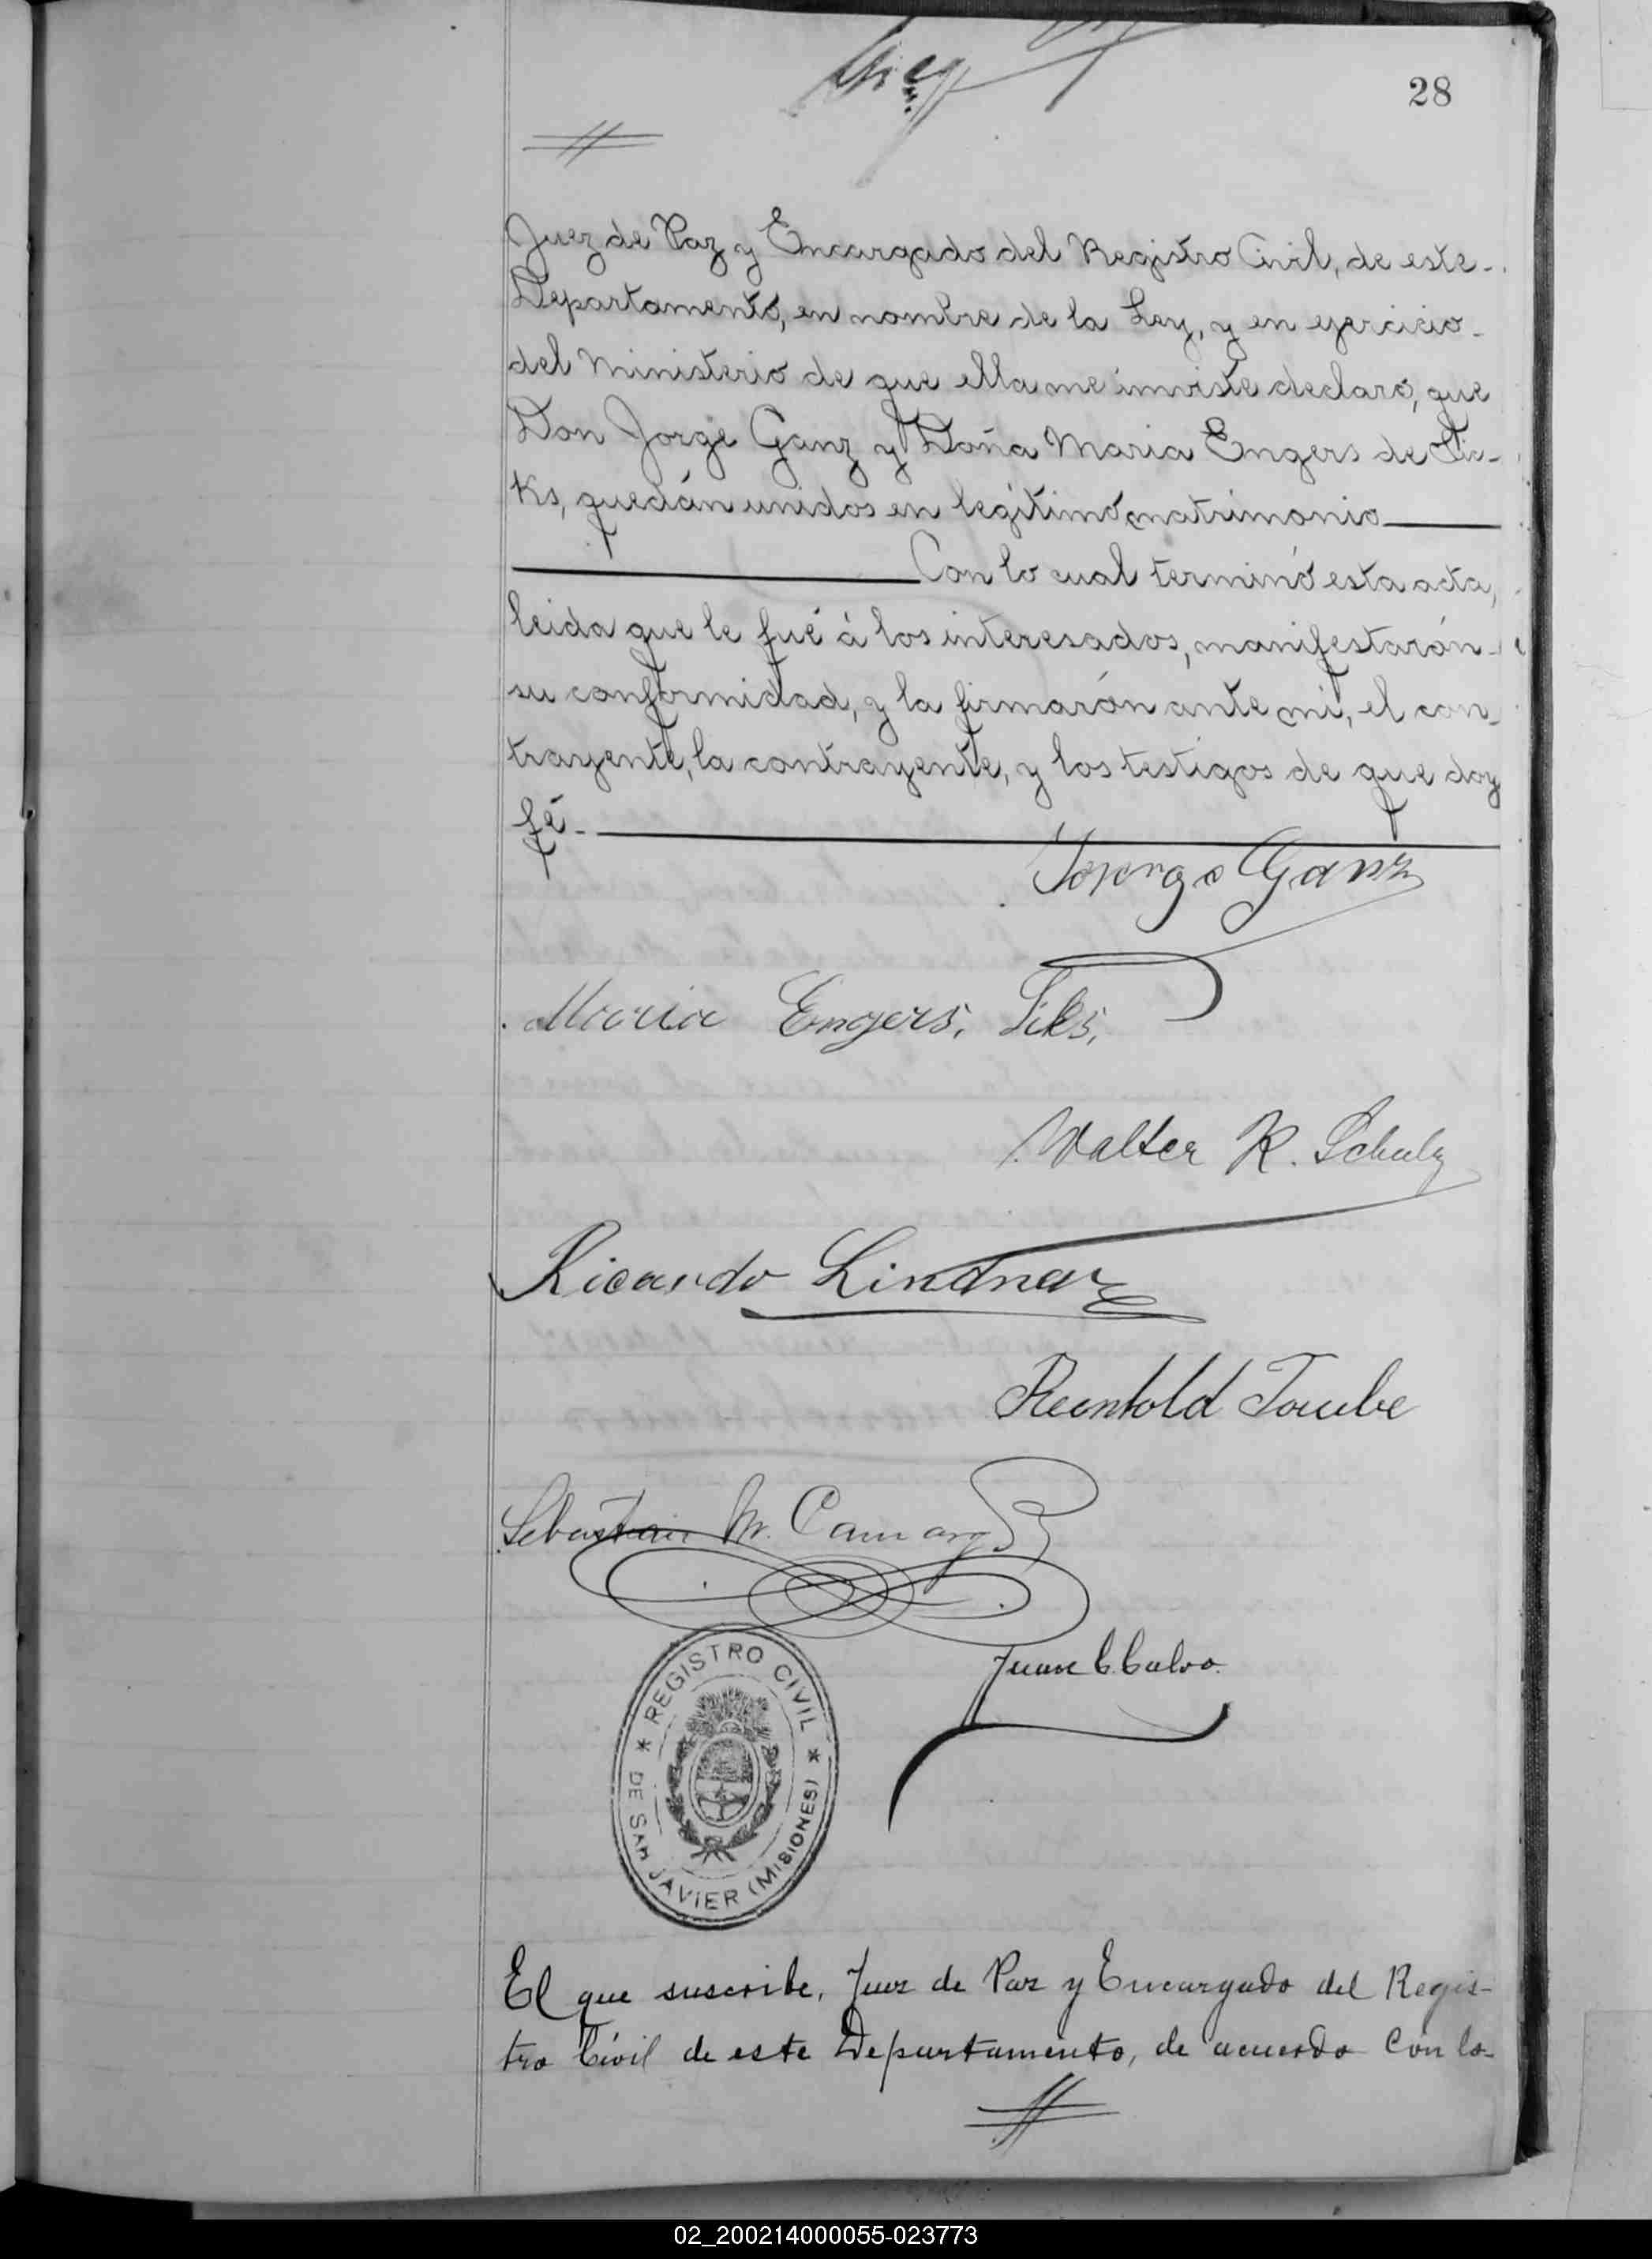 28
Juez de Paz y Encargado del Registro Civil, de este-
Departamentó, en nombre de la Ley, y en ejercicio-
del Ministerio de que ella me inviste declaró, que
Don Jorge Ganz y Doña Maria Engers de Lic-
Ks, quedán unidos en legitimó matrimonio
Con lo cual terminó esta acta,
leida que le fué á los interesados, manifestarón-
su conformidad, y la firmarón ante mi, el con-
trayente, la contrayente, y los testigos de que doy
fé-
Ganz
Maria Engers.
Walter R. Schulz
Ricardo Lindner
Reinhold Taube
Sebastian M. Camargo
Juan C. Calvo.
* REGISTRO CIVIL *
DE SAN JAVIER (MISIONES)
El que suscribe, Juez de Paz y Encargado del Regis-
tro Civil de este Departamento, de acuerdo con lo-
02_200214000055-023773